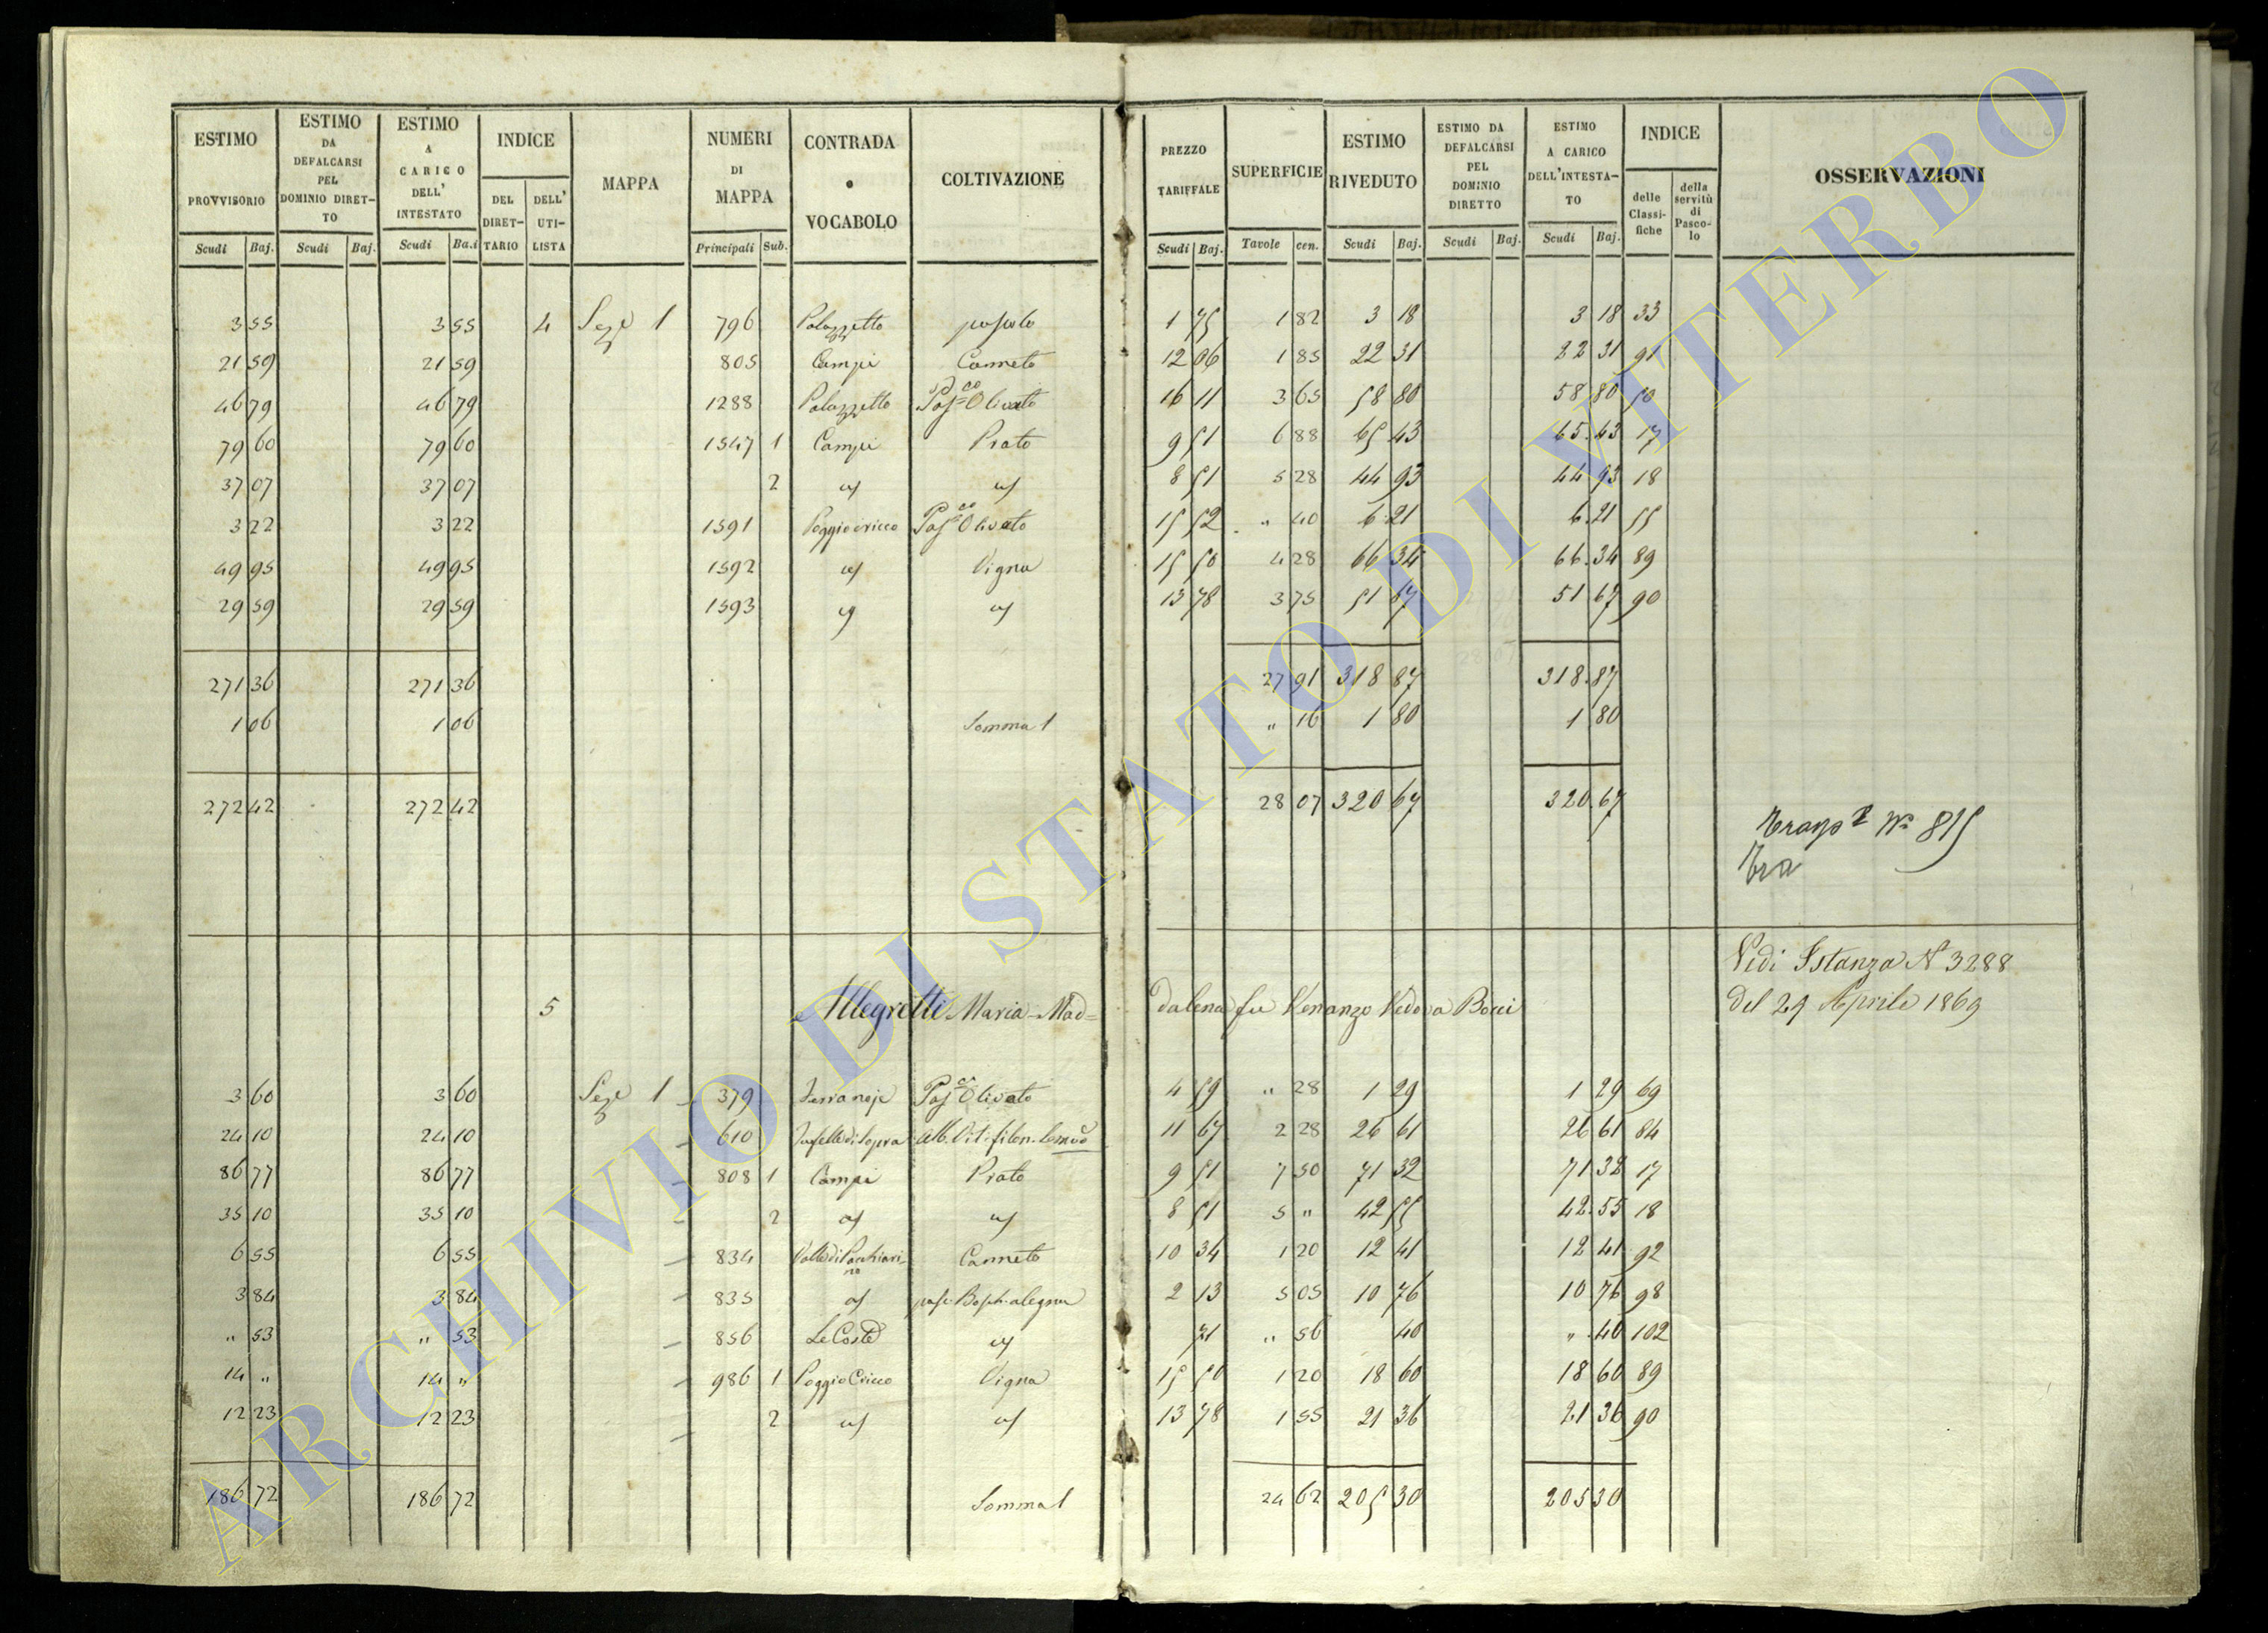 ESTIMO PROVVISORIO Scudi Baj. | ESTIMO DA DEFALCARSI PEL DOMINIO DIRET-TO Scudi Baj. | ESTIMO A CARICO DELL' INTESTATO Scudi Ba.i | INDICE DEL DIRET-TARIO DELL' UTI-LISTA | MAPPA | NUMERI DI MAPPA Principali Sub. | CONTRADA o VOCABOLO | COLTIVAZIONE | PREZZO TARIFFALE Scudi Baj. | SUPERFICIE Tavole cen. | ESTIMO RIVEDUTO Scudi Baj. | ESTIMO DA DEFALCARSI PEL DOMINIO DIRETTO Scudi Baj. | ESTIMO A CARICO DELL'INTESTA-TO Scudi Baj. | INDICE delle Classi-fiche della servitù di Pasco-lo | OSSERVAZIONI
3 55 3 55 4 Seze 1 796 Palazzetto pascolo 1 75 1 82 3 18 3 18 33
21 59 21 59 805 Campi Canneto 12 06 1 85 22 31 22 31 91
46 79 46 79 1288 Palazzetto Olivato 16 11 3 65 58 80 58 80 50
79 60 79 60 1547 1 Campi Prato 9 51 6 88 65 43 65.43 17
37 07 37 07 2 8 51 5 28 44 93 44 93 18
3 22 3 22 1591 Poggio cricco Olivato 15 52 " 40 6 21 6.21 55
49 95 49 95 1592 Vigna 15 50 4 28 66 34 66.34 89
29 59 29 59 1593 13 78 3 75 51 67 51 67 90
271 36 271 36 27 91 318 87 318.87
1 06 1 06 Somma 1 " 16 1 80 1 80
272 42 272 42 28 07 320 67 320.67
N° 815
Tra
Vedi Istanza N 3288
5 Allegretti Maria-Mad= dalena fu Venanzo Vedova Bocci del 29 Aprile 1869
3 60 3 60 Seze 1 379 Olivato 4 59 " 28 1 29 1 29 69
24 10 24 10 610 11 67 2 28 26 61 26 61 84
86 77 86 77 808 1 Campi Prato 9 51 7 50 71 32 71 32 17
35 10 35 10 2 8 51 5 " 42 55 42.55 18
6 55 6 55 834 Canneto 10 34 1 20 12 41 12 41 92
3 84 3 84 835 2 13 5 05 10 76 10 76 98
" 53 " 53 856 Le Coste 71 " 56 40 " .40 102
14 " 14 " 986 1 Poggio Cricco Vigna 15 50 1 20 18 60 18 60 89
12 23 12 23 2 13 78 1 55 21 36 21 36 90
186 72 186 72 Somma 1 24 62 205 30 205 30
ARCHIVIO DI STATO DI VITERBO